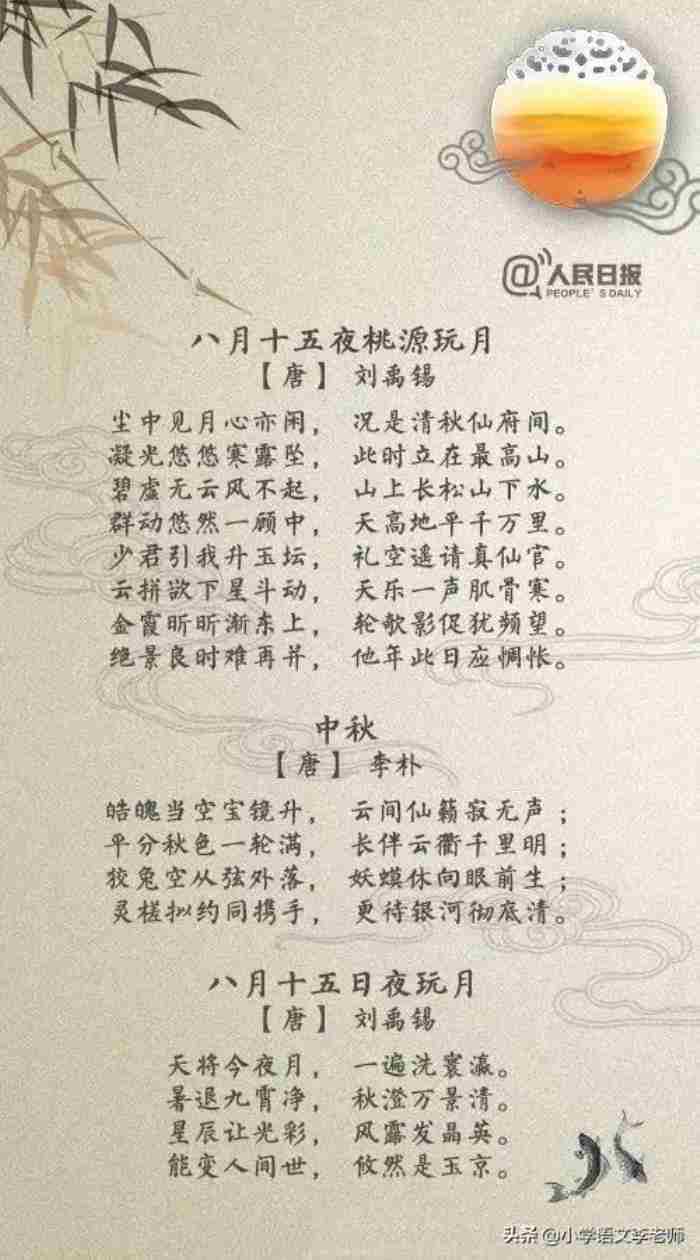 @人民日报
PEOPLE'S DAILY
八月十五夜桃源玩月
【唐】 刘禹锡
尘中见月心亦闲， 况是清秋仙府间。
凝光悠悠寒露坠， 此时立在最高山。
碧虚无云风不起， 山上长松山下水。
群动悠然一顾中， 天高地平千万里。
少君引我升玉坛， 礼空遥请真仙官。
云拼欲下星斗动， 天乐一声肌骨寒。
金霞昕昕渐东上， 轮歌影促犹频望。
绝景良时难再并， 他年此日应惆怅。
中秋
【唐】 李朴
皓魄当空宝镜升， 云间仙籁寂无声；
平分秋色一轮满， 长伴云衢千里明；
狡兔空从弦外落， 妖蟆休向眼前生；
灵槎拟约同携手， 更待银河彻底清。
八月十五日夜玩月
【唐】 刘禹锡
天将今夜月， 一遍洗寰瀛。
暑退九霄净， 秋澄万景清。
星辰让光彩， 风露发晶英。
能变人间世， 攸然是玉京。
头条 @小学语文李老师